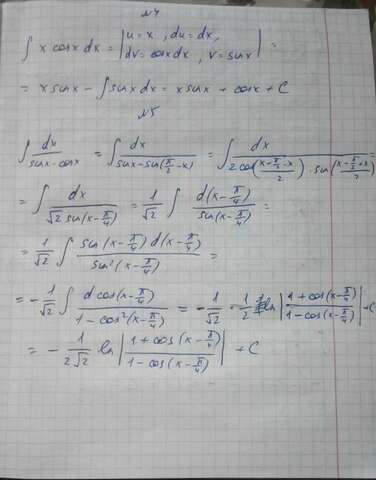 №4
∫ x cosx dx = |u = x, du = dx, dv = cosx dx, v = sinx| =
= x sinx - ∫ sinx dx = x sinx + cosx + C
№5
∫ dx/(sinx - cosx) = ∫ dx/(sinx - sin(π/2 - x)) = ∫ dx/(2 cos((x + π/2 - x)/2) · sin((x - π/2 + x)/2)) =
= ∫ dx/(√2 sin(x - π/4)) = 1/√2 ∫ d(x - π/4)/sin(x - π/4) =
= 1/√2 ∫ sin(x - π/4) d(x - π/4)/sin²(x - π/4) =
= - 1/√2 ∫ d cos(x - π/4)/(1 - cos²(x - π/4)) = - 1/√2 · 1/2 ln |(1 + cos(x - π/4))/(1 - cos(x - π/4))| + C
= - 1/(2√2) ln |(1 + cos(x - π/4))/(1 - cos(x - π/4))| + C